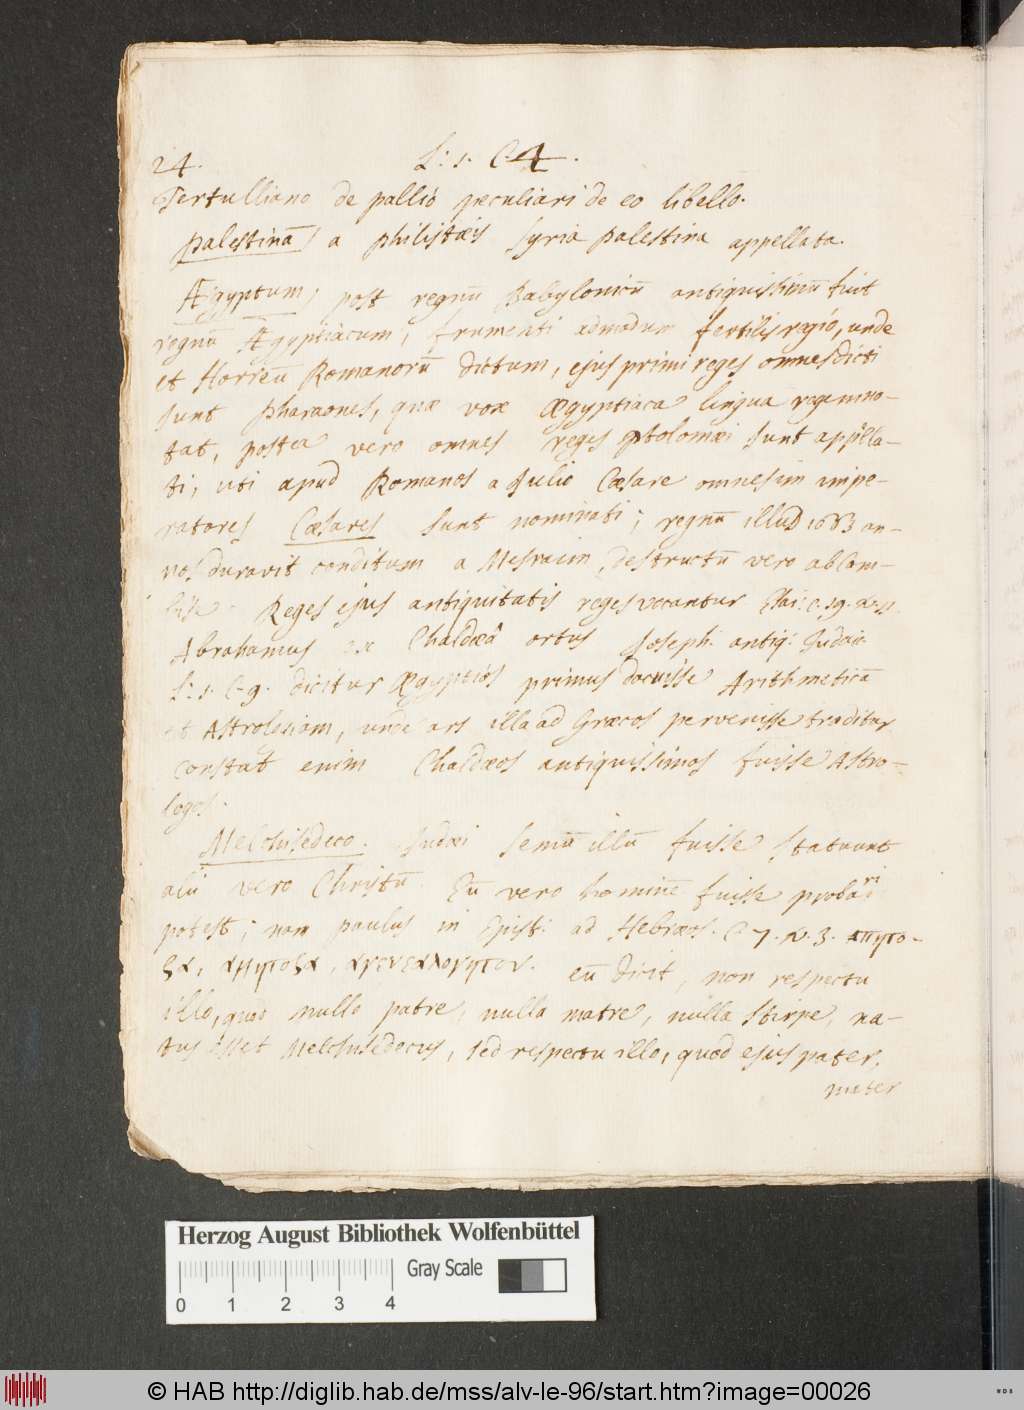 24. L: 1. C. 4.
Tertulliano de pallio peculiari de eo libello.
Palestina a Philistæis Syria Palestina appellata.
Ægyptum, post regnū Babylonicū antiquissimū fuit
regnū Ægyptiacum, frumenti admodum fertilis regio, unde
et Horreū Romanorū dictum, ejus primi reges omnes dicti
sunt Pharaones, quæ vox Ægyptiaca lingua regem no-
tat, postea vero omnes reges Ptolomæi sunt appella-
ti, uti apud Romanos a Julio Cæsare omnes im impe-
ratores Cæsares sunt nominati; regnū illud 1663 an-
nos duravit conditum a Mesraim, destructū vero ab Cam-
bise. Reges ejus antiquitatis reges vocantur Esai: c. 19. v. 11.
Abrahamus ex Chaldæâ ortus Joseph. antiq: Judaic.
L: 1. C. 9. dicitur Ægyptios primus docuisse Arithmeticā
et Astrologiam, unde ars illa ad Græcos pervenisse traditur
constat enim Chaldæos antiquissimos fuisse Astro-
logos.
Melchisedeco. Judæi Semū illū fuisse statuunt
alii vero Christū. Eū vero hominē fuisse probari
potest; nam Paulus in Epist: ad Hebræos. C. 7. v. 3. απητο-
ξα, αμητοξα, αγενεαλογητον. eū dicit, non respectu
illo, quod nullo patre, nulla matre, nulla stirpe, na-
tus esset Melchisedecus, sed respectu illo, quod ejus pater,
mater
Herzog August Bibliothek Wolfenbüttel
Gray Scale
0 1 2 3 4
© HAB http://diglib.hab.de/mss/alv-le-96/start.htm?image=00026